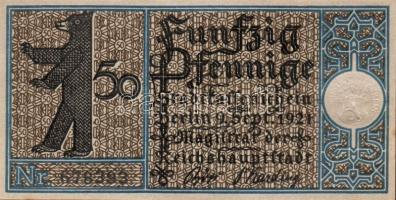 Funfzig
50 Pfennige
Stadtkassenschein
Berlin 9. Sept. 1921
Magistrat der
Reichshauptstadt
Nr. 678293